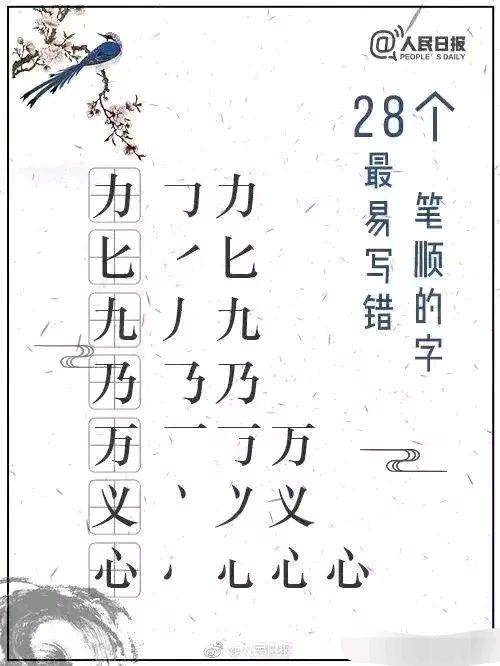 @人民日报
PEOPLE'S DAILY
28个
最易写错
笔顺的字
力 𠃌 力
匕 ㇒ 匕
九 丿 九
乃 ㇋ 乃
万 一 丂 万
义 丶 ソ 义
心 丶 心 心 心
@人民日报